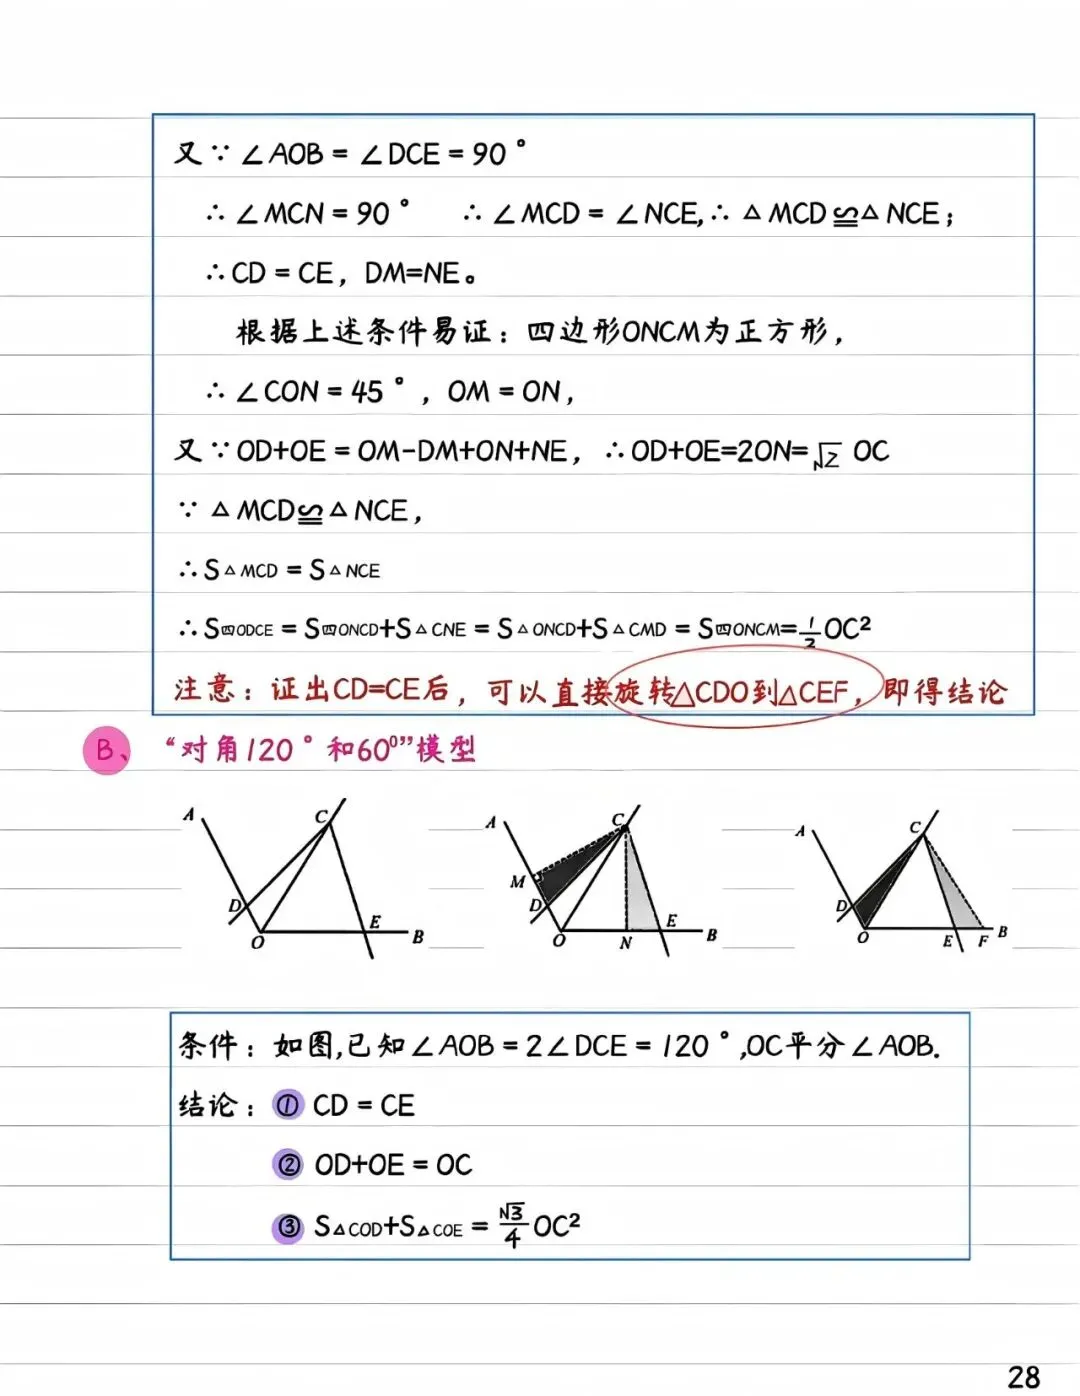 又∵∠AOB=∠DCE=90°
∴∠MCN=90° ∴∠MCD=∠NCE,∴△MCD≌△NCE；
∴CD=CE，DM=NE。
根据上述条件易证：四边形ONCM为正方形，
∴∠CON=45°，OM=ON，
又∵OD+OE=OM-DM+ON+NE，∴OD+OE=2ON=√2 OC
∵△MCD≌△NCE，
∴S△MCD=S△NCE
∴S四ODCE=S四ONCD+S△CNE=S△ONCD+S△CMD=S四ONCM=1/2OC²
注意：证出CD=CE后，可以直接旋转△CDO到△CEF，即得结论
B、“对角120°和60⁰”模型
A C D O E B
A C M D O N E B
A C D O E F B
条件：如图,已知∠AOB=2∠DCE=120°,OC平分∠AOB.
结论：① CD=CE
② OD+OE=OC
③ S△COD+S△COE=√3/4OC²
28